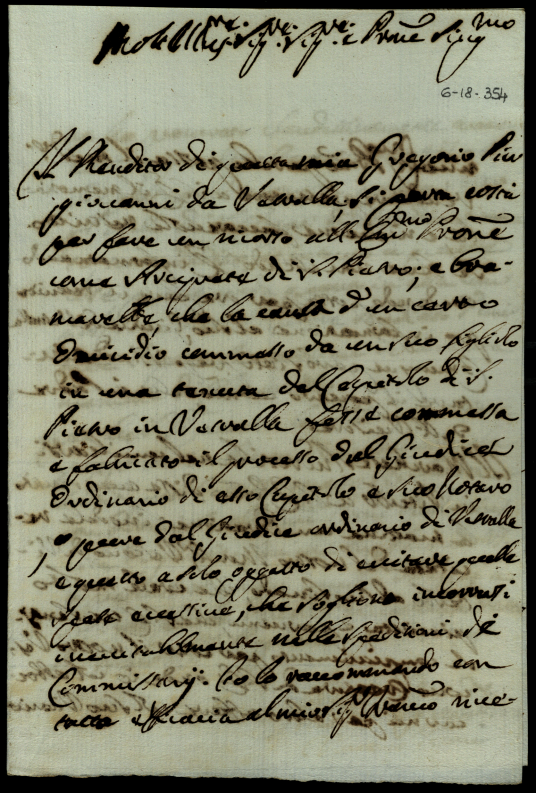 Molt Ill.re Sig.re Sig.re e Prone Sing.mo
6-18-354
Il Renditor di questa mia Gregorio Pier
giovanni da Vetralla si porta costì
per fare un ricorso all' Em.mo Prone
come Arciprete di S. Pietro; e bra-
marebbe, che la causa d' un certo
Omicidio commesso da un suo figliolo
in una tenuta del Capitolo di S.
Pietro in Vetralla fosse commessa
e fabricato il processo dal Giudice
Ordinario di esso Capitolo e suo Notaro
o pure dal Giudice ordinario di Vetralla
e questo a solo oggetto di evitare quelle
spese eccessive, che sogliono incorrersi
inevitabilmente nelle spedizioni di
Commissarij. Io lo raccomando con
tutta efficacia al mio Sig. rive-